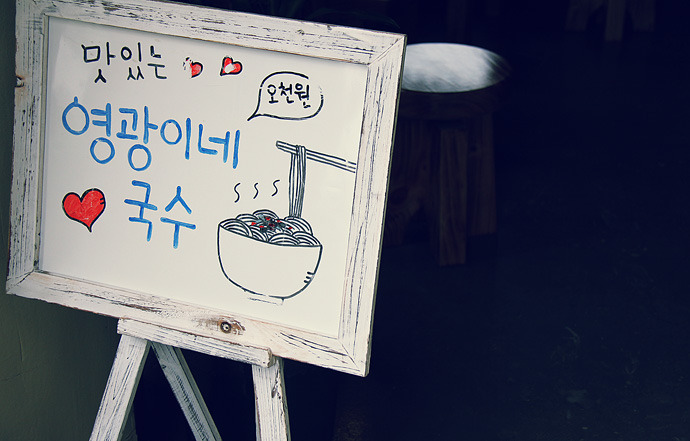 맛있는
오천원
영광이네
국수